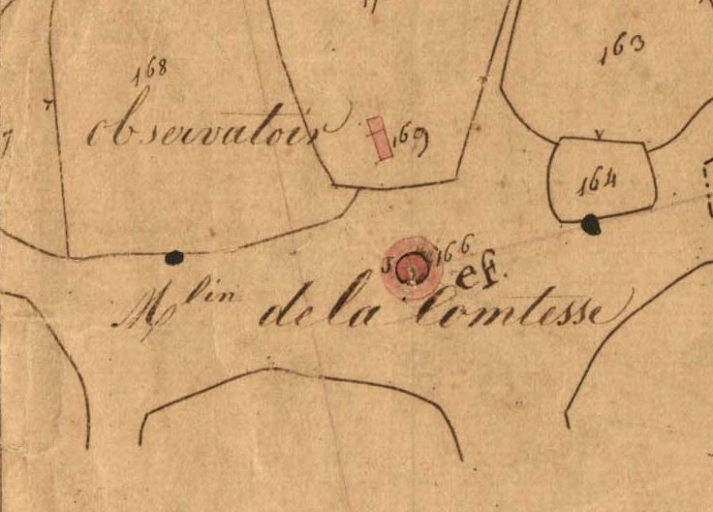 163
168
observatoir
169
164
166
ef.
M^lin de la Comtesse